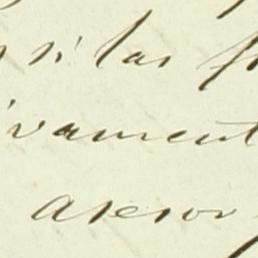 si las
ivament
asesor